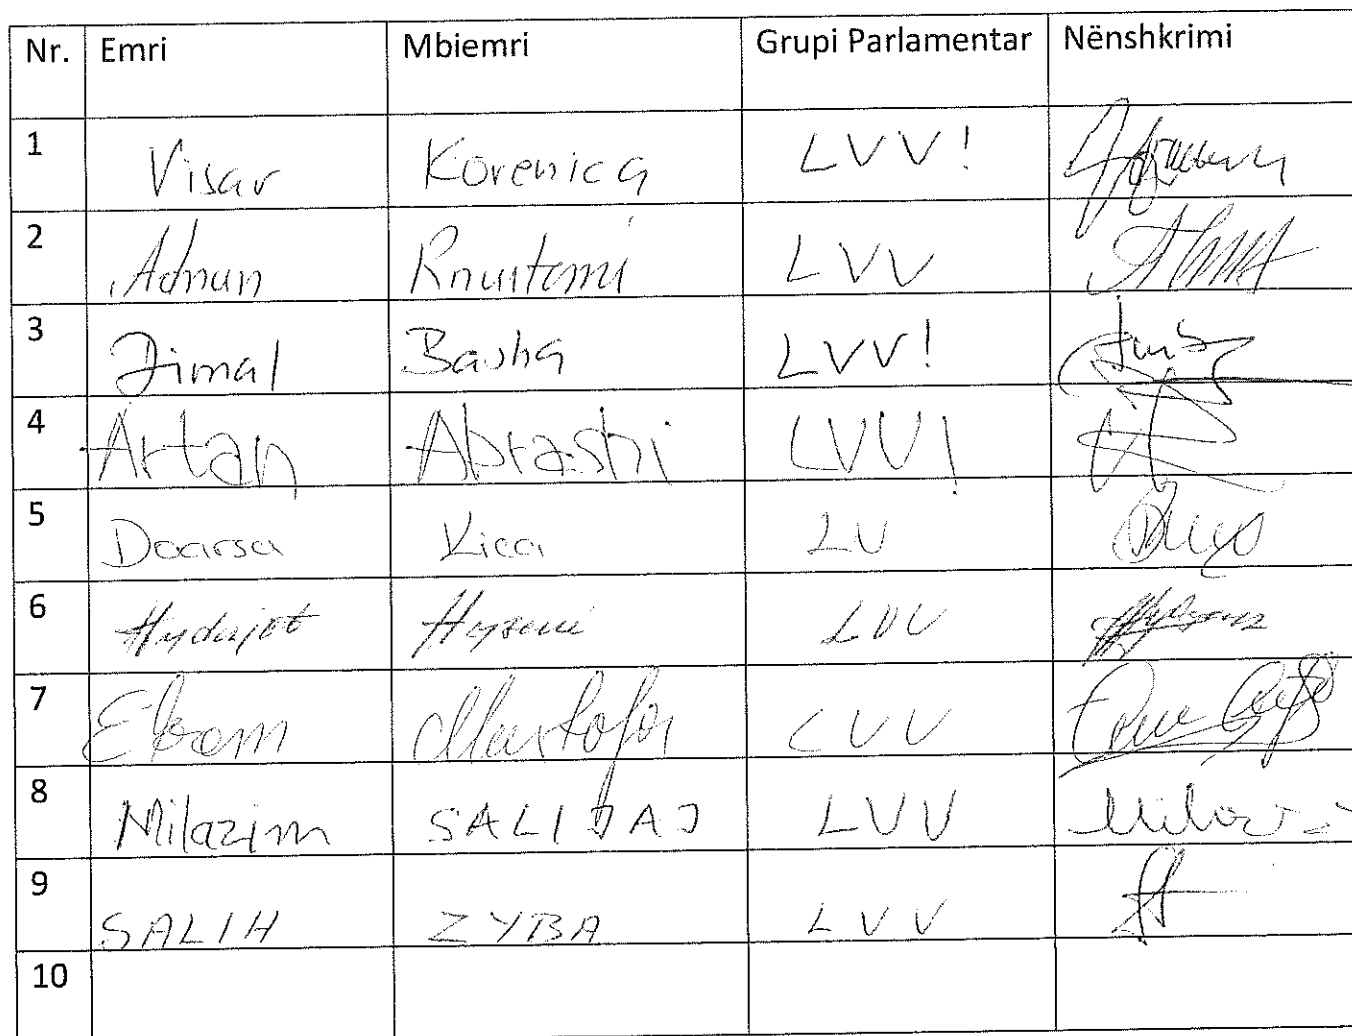 Nr. Emri Mbiemri Grupi Parlamentar Nënshkrimi
1 Visar Korenica LVV!
2 Adnan Rrustemi LVV
3 Jimal Basha LVV!
4 Artan Abrashi LVV!
5 Doarsa Kica LV
6 Hydajet Hyseni LVV
7 Ekrem Mustafa LVV
8 Milazim SALIJAJ LVV
9 SALIH ZYBA LVV
10